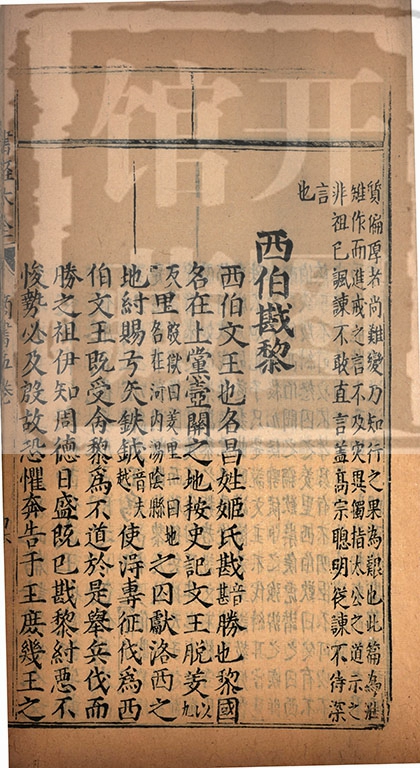 質偏厚者尚難變乃知行之果為艱也此篇為雊
雉作而進戒之言不及灾異獨指大公之道示之
非祖已諷諫不敢直言蓋髙宗聰明從諫不待深
言也
西伯戡黎
西伯文王也名昌姓姬氏戡音堪勝也黎國
名在上黨壺關之地按史記文王脫羑以九
反里殷獄曰羑里一曰地名在河内湯陰縣之囚獻洛西之
地紂賜弓矢鈇鉞音夫越使得專征伐為西
伯文王既受命黎為不道於是舉兵伐而
勝之祖伊知周德日盛既已戡黎紂惡不
悛勢必及殷故恐懼奔告于王庶幾王之
書經大全 商書五卷
开
馆